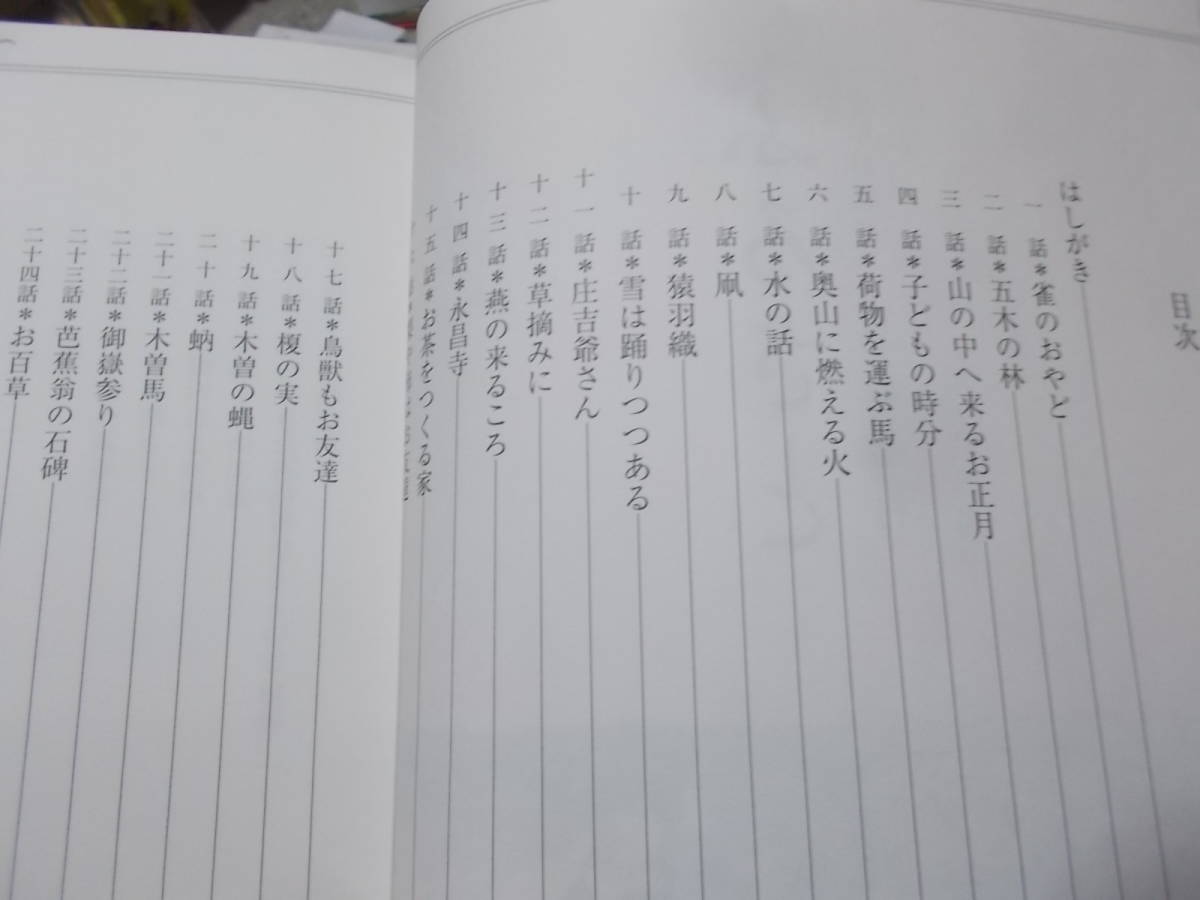 目次
はしがき
一話*雀のおやど
二話*五木の林
三話*山の中へ来るお正月
四話*子どもの時分
五話*荷物を運ぶ馬
六話*奥山に燃える火
七話*水の話
八話*凧
九話*猿羽織
十話*雪は踊りつつある
十一話*庄吉爺さん
十二話*草摘みに
十三話*燕の来るころ
十四話*永昌寺
十五話*お茶をつくる家
十七話*鳥獣もお友達
十八話*榎の実
十九話*木曽の蝿
二十話*蚋
二十一話*木曽馬
二十二話*御嶽参り
二十三話*芭蕉翁の石碑
二十四話*お百草